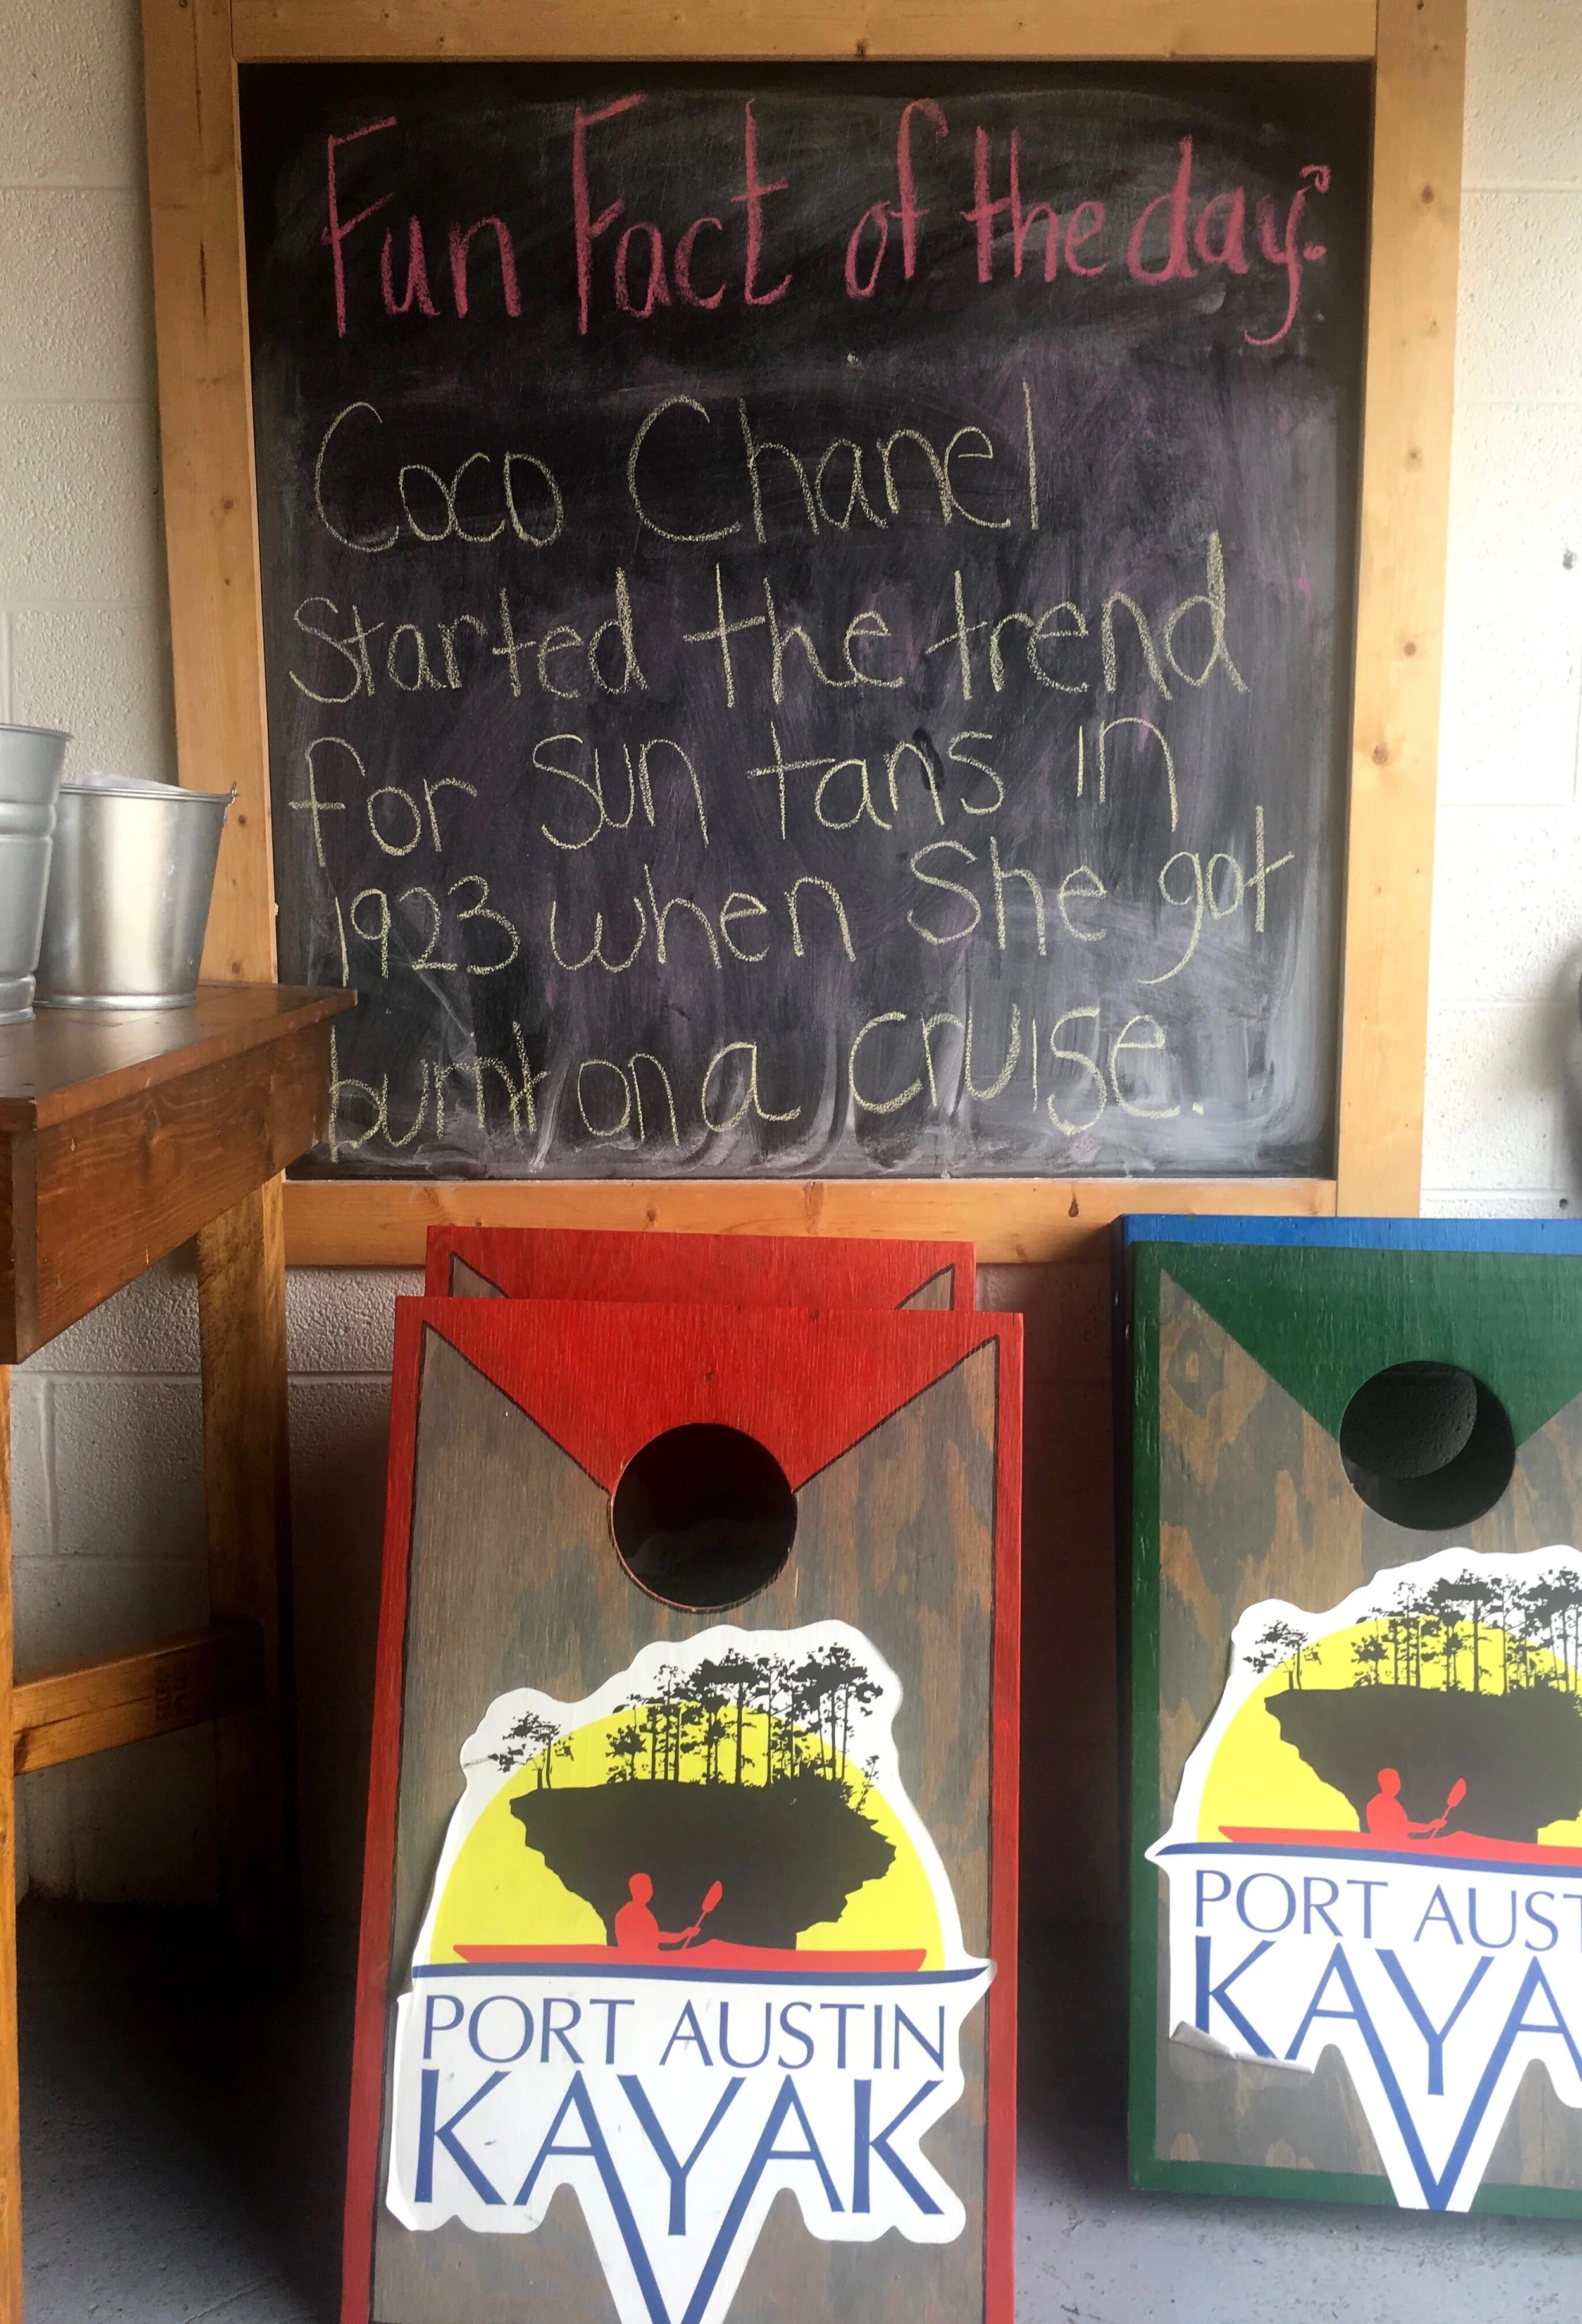 Fun Fact of the day:
Coco Chanel
Started the trend
for sun tans in
1923 when She got
burnt on a cruise.
PORT AUSTIN
KAYAK
PORT AUST
KAYA